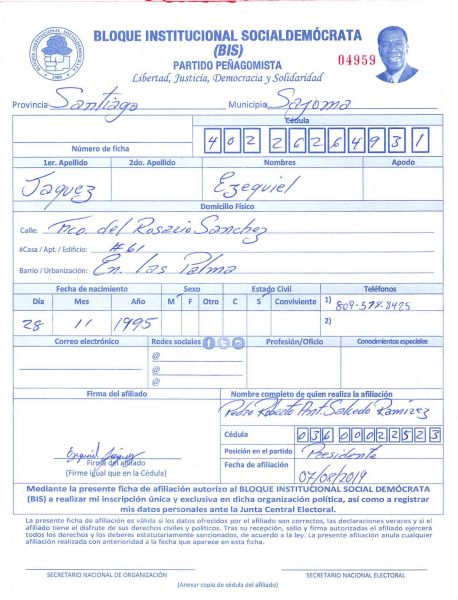 BLOQUE INSTITUCIONAL SOCIALDEMÓCRATA
(BIS)
PARTIDO PEÑAGOMISTA
04959
Libertad, Justicia, Democracia y Solidaridad
Provincia Santiago Municipio Sajoma
Cédula
Número de ficha 402 2626493 1
1er. Apellido 2do. Apellido Nombres Apodo
Jaquez Ezequiel
Domicilio Físico
Calle: Fco. del Rosario Sanchez
#Casa / Apt. / Edificio: #61
Barrio / Urbanización: En. Las Palma
Fecha de nacimiento Sexo Estado Civil Teléfonos
Día Mes Año M F Otro C S Conviviente 1) 809-577-8425
28 11 1995 2)
Correo electrónico Redes sociales Profesión/Oficio Conocimientos especiales
@
@
@
Firma del afiliado Nombre completo de quien realiza la afiliación
Pedro Roberto Ant. Salcedo Ramirez
Cédula 036 0002252 3
Posición en el partido Presidente
Ezequiel Jáquez
Firma del afiliado
(Firme igual que en la Cédula)
Fecha de afiliación 07/08/2019
Mediante la presente ficha de afiliación autorizo al BLOQUE INSTITUCIONAL SOCIAL DEMÓCRATA
(BIS) a realizar mi inscripción única y exclusiva en dicha organización política, así como a registrar
mis datos personales ante la Junta Central Electoral.
La presente ficha de afiliación es válida si los datos ofrecidos por el afiliado son correctos, las declaraciones veraces y si el
afiliado tiene el disfrute de sus derechos civiles y políticos. Tras su recepción, sello y firma autorizadas el afiliado ejercerá
todos los derechos y los deberes estatutariamente sancionados, de acuerdo a la ley. La presente afiliación anula cualquier
afiliación realizada con anterioridad a la fecha que aparece en esta ficha.
SECRETARIO NACIONAL DE ORGANIZACIÓN SECRETARIO NACIONAL ELECTORAL
(Anexar copia de cédula del afiliado)